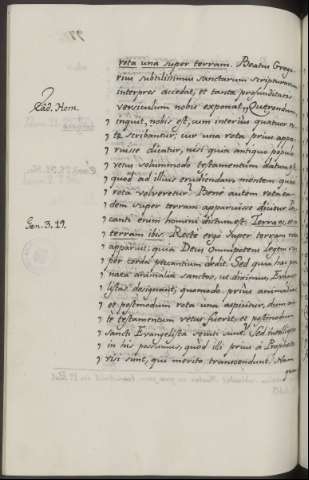 rota una super terram. Beatus Grego-
rius subtilissimus sanctarum scripturarum
interpres accedat, et tanta profunditatis
Ead. Hom.
versiculum nobis exponat. „Querendum,
„ inquit, nobis est, cum inferius quatuor ro-
„ tæ scribantur, cur una rota prius appa-
„ ruisse dicatur, nisi quia antiquo populo
„ vetus solummodo testamentum datum est,
„ quod ad illius erudiendam mentem quasi
„ rota volveretur? Bene autem rota ea-
„ dem super terram apparuisse dicitur. Pec-
„ canti enim homini dictum est: Terra es, et in
Gen. 3. 19.
„ terram ibis. Recte ergo super terram rota
„ apparuit, quia Deus Omnipotens legem su-
„ per corda peccantium dedit. Sed quia hæc pen-
„ nata animalia sanctos, ut diximus, Evange-
„ listas designant, quomodo prius animalia
„ et postmodum rota una aspicitur, dum an-
„ te testamentum vetus fuerit, et postmodum
„ sancti Evangelistæ sequuti sunt? Sed intelligere
„ in his possumus, quod illi prius a Propheta
„ visi sunt, qui merito transcendunt. Nam